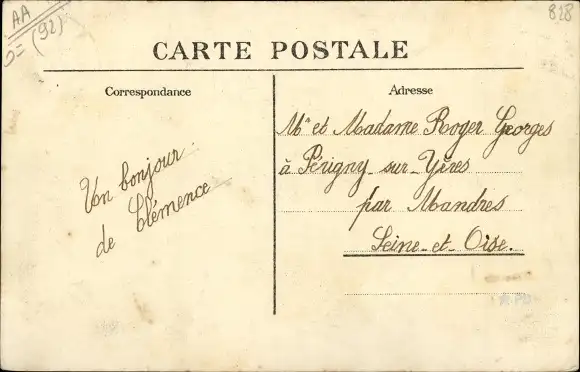 AA
(92)
828
CARTE POSTALE
Correspondance
Adresse
Un bonjour
de Clémence
Mr et Madame Roger Georges
à Périgny-sur-Yères
par Mandres
Seine-et-Oise.